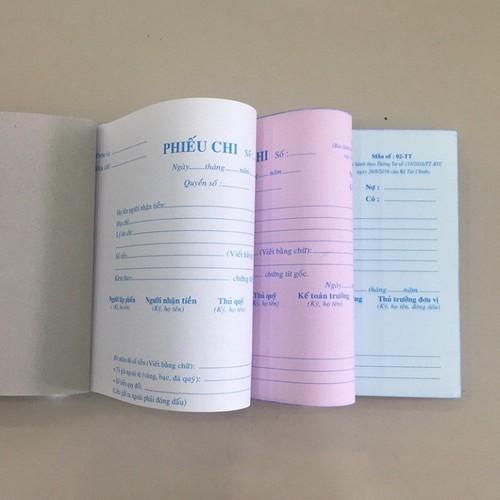 PHIẾU CHI Số
Ngày........tháng........năm
Quyển số :
Họ tên người nhận tiền:
Địa chỉ:
Lý do chi:
Số tiền: (Viết bằng chữ):
Kèm theo: chứng từ
Người lập phiếu Người nhận tiền Thủ quỹ
(Ký, họ tên) (Ký, họ tên) (Ký, họ tên)
Đã nhận đủ số tiền (Viết bằng chữ):
+ Tỉ giá ngoại tệ (vàng, bạc, đá quý):
+ Số tiền quy đổi:
(Liên gửi ra ngoài phải đóng dấu)
HI Số :
năm
bằng chữ):
chứng từ gốc.
Ngày
Thủ quỹ Kế toán trưởng
(Ký, họ tên) (Ký, họ tên)
Mẫu số : 02-TT
hành theo Thông Tư số 133/2016/TT-BTC
ngày 26/8/2016 của Bộ Tài Chính)
Nợ :
Có :
tháng năm
Thủ trưởng đơn vị
(Ký, họ tên, đóng dấu)